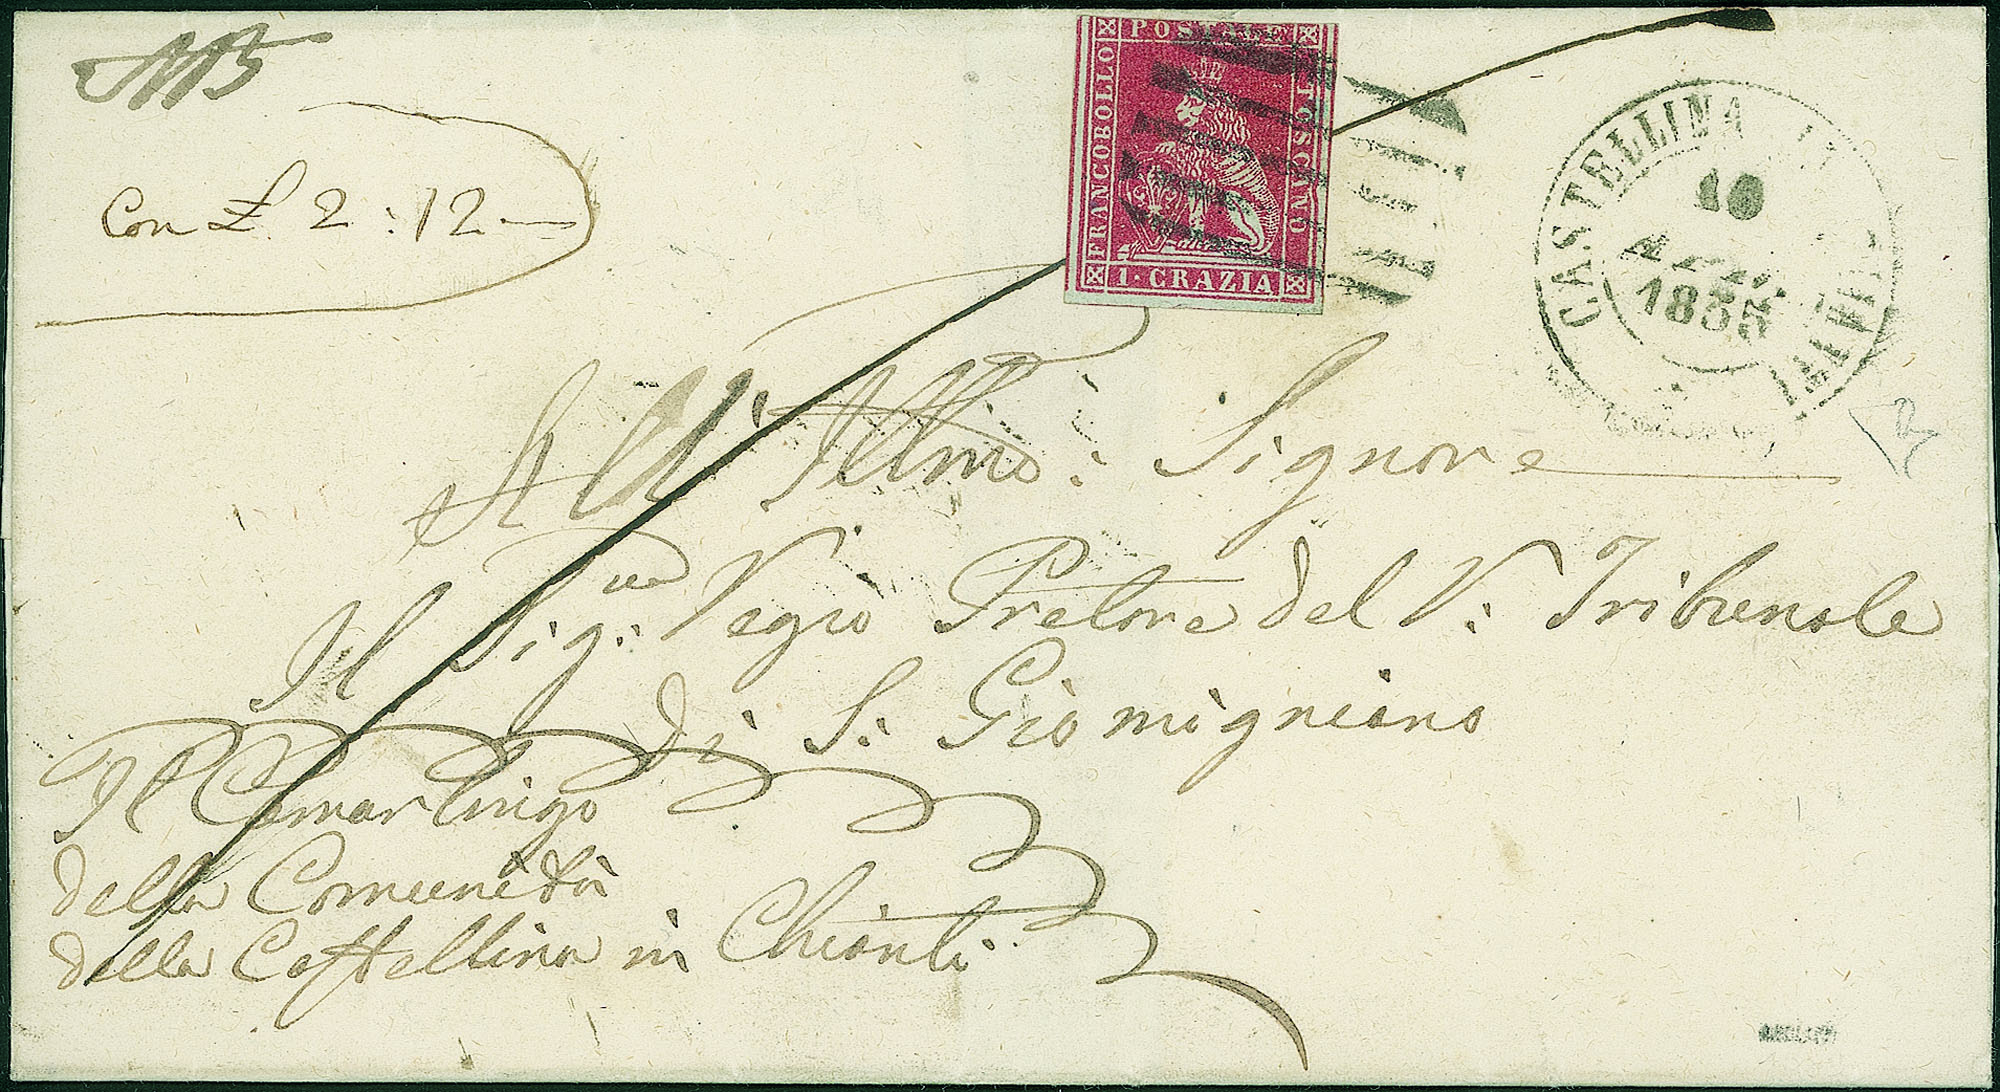 Con £. 2:12
FRANCOBOLLO POSTALE TOSCANO
1·CRAZIA
CASTELLINA IN CHIANTI
10
1855
All' Illmo: Signore
Il Sig: Vegio Pretore del V: Tribunale
di S. Giomigniano
Il Camarlingo
della Comunità
della Castellina in Chianti